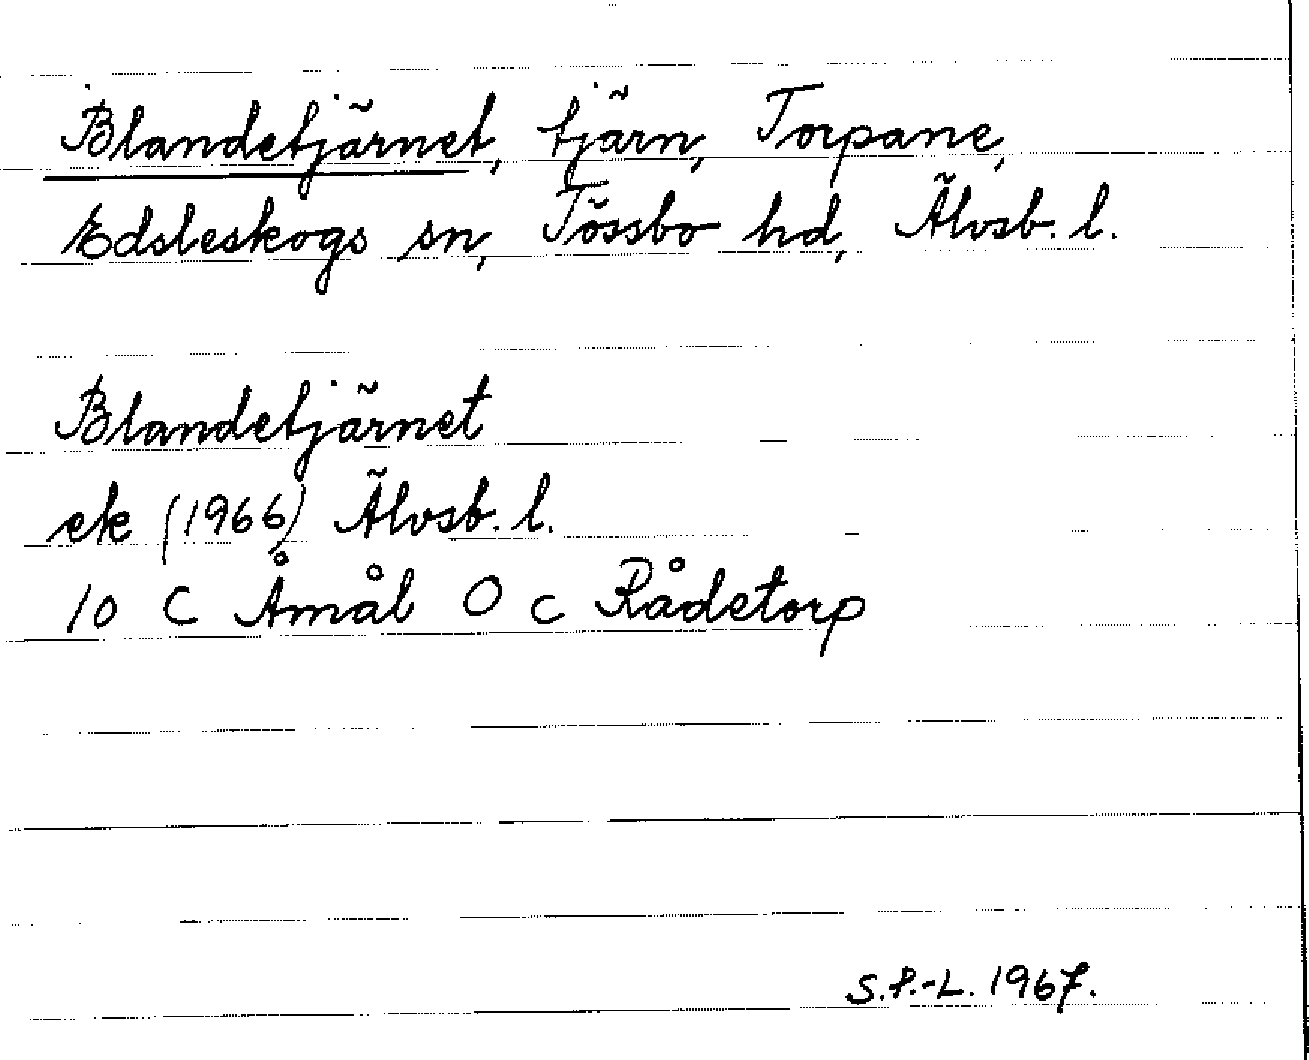 Blandetjärnet, tjärn, Torpane,
Edsleskogs sn, Tössbo hd, Älvsb. l.
Blandetjärnet
ek (1966) Älvsb. l.
10 C Åmål O c Rådetorp
S.P.-L. 1967.